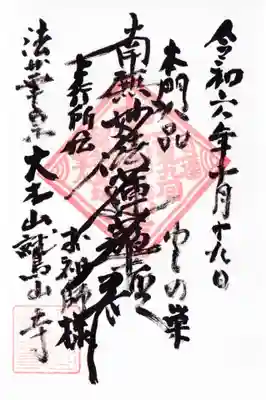 令和六年十月十九日
本門八品 わしの巣
南無妙法蓮華経
上行所伝 お祖師様
法華宗 大本山鷲山寺